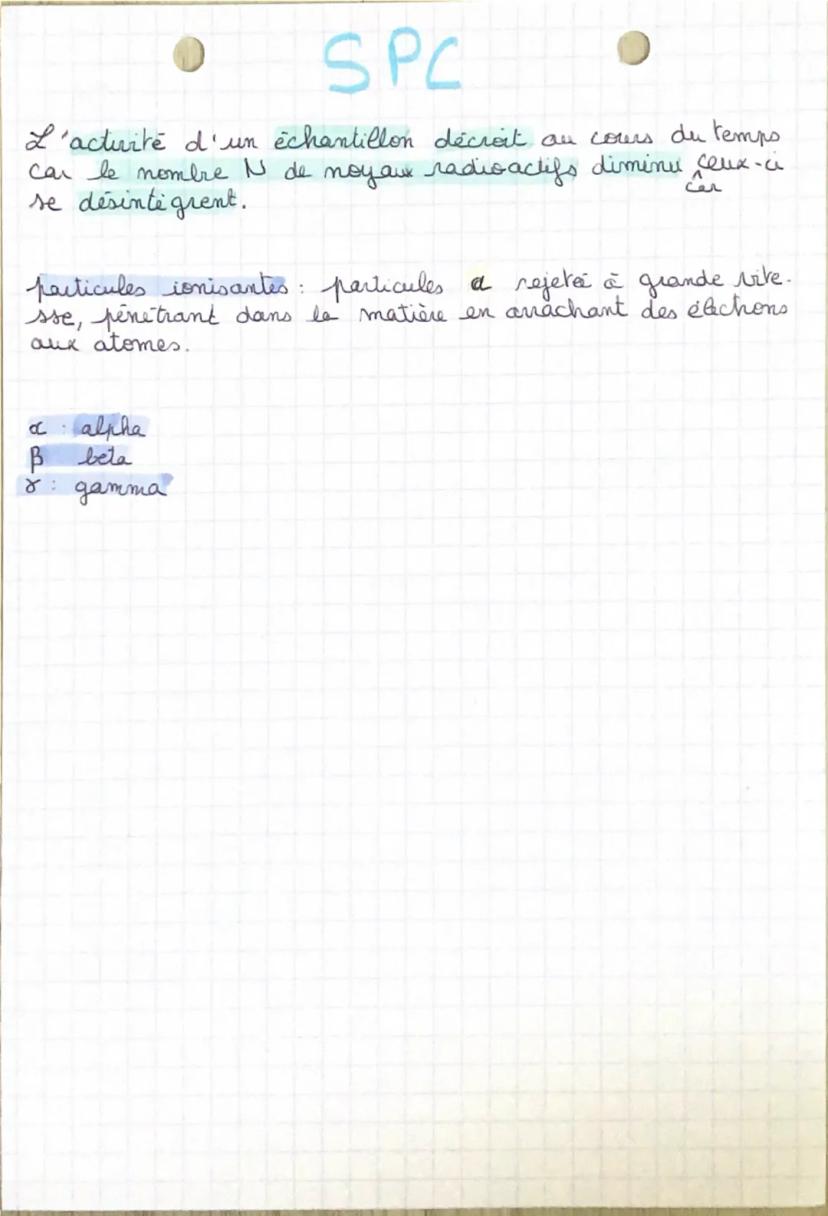 SPC
L'activité d'un échantillon décroit au cours du temps
car le nombre N de noyaux radioactifs diminu ceux-ci
car
se désintègrent.
particules ionisantes : particules α rejeté à grande vite-
sse, pénétrant dans la matière en arrachant des électrons
aux atomes.
α : alpha
β beta
γ : gamma